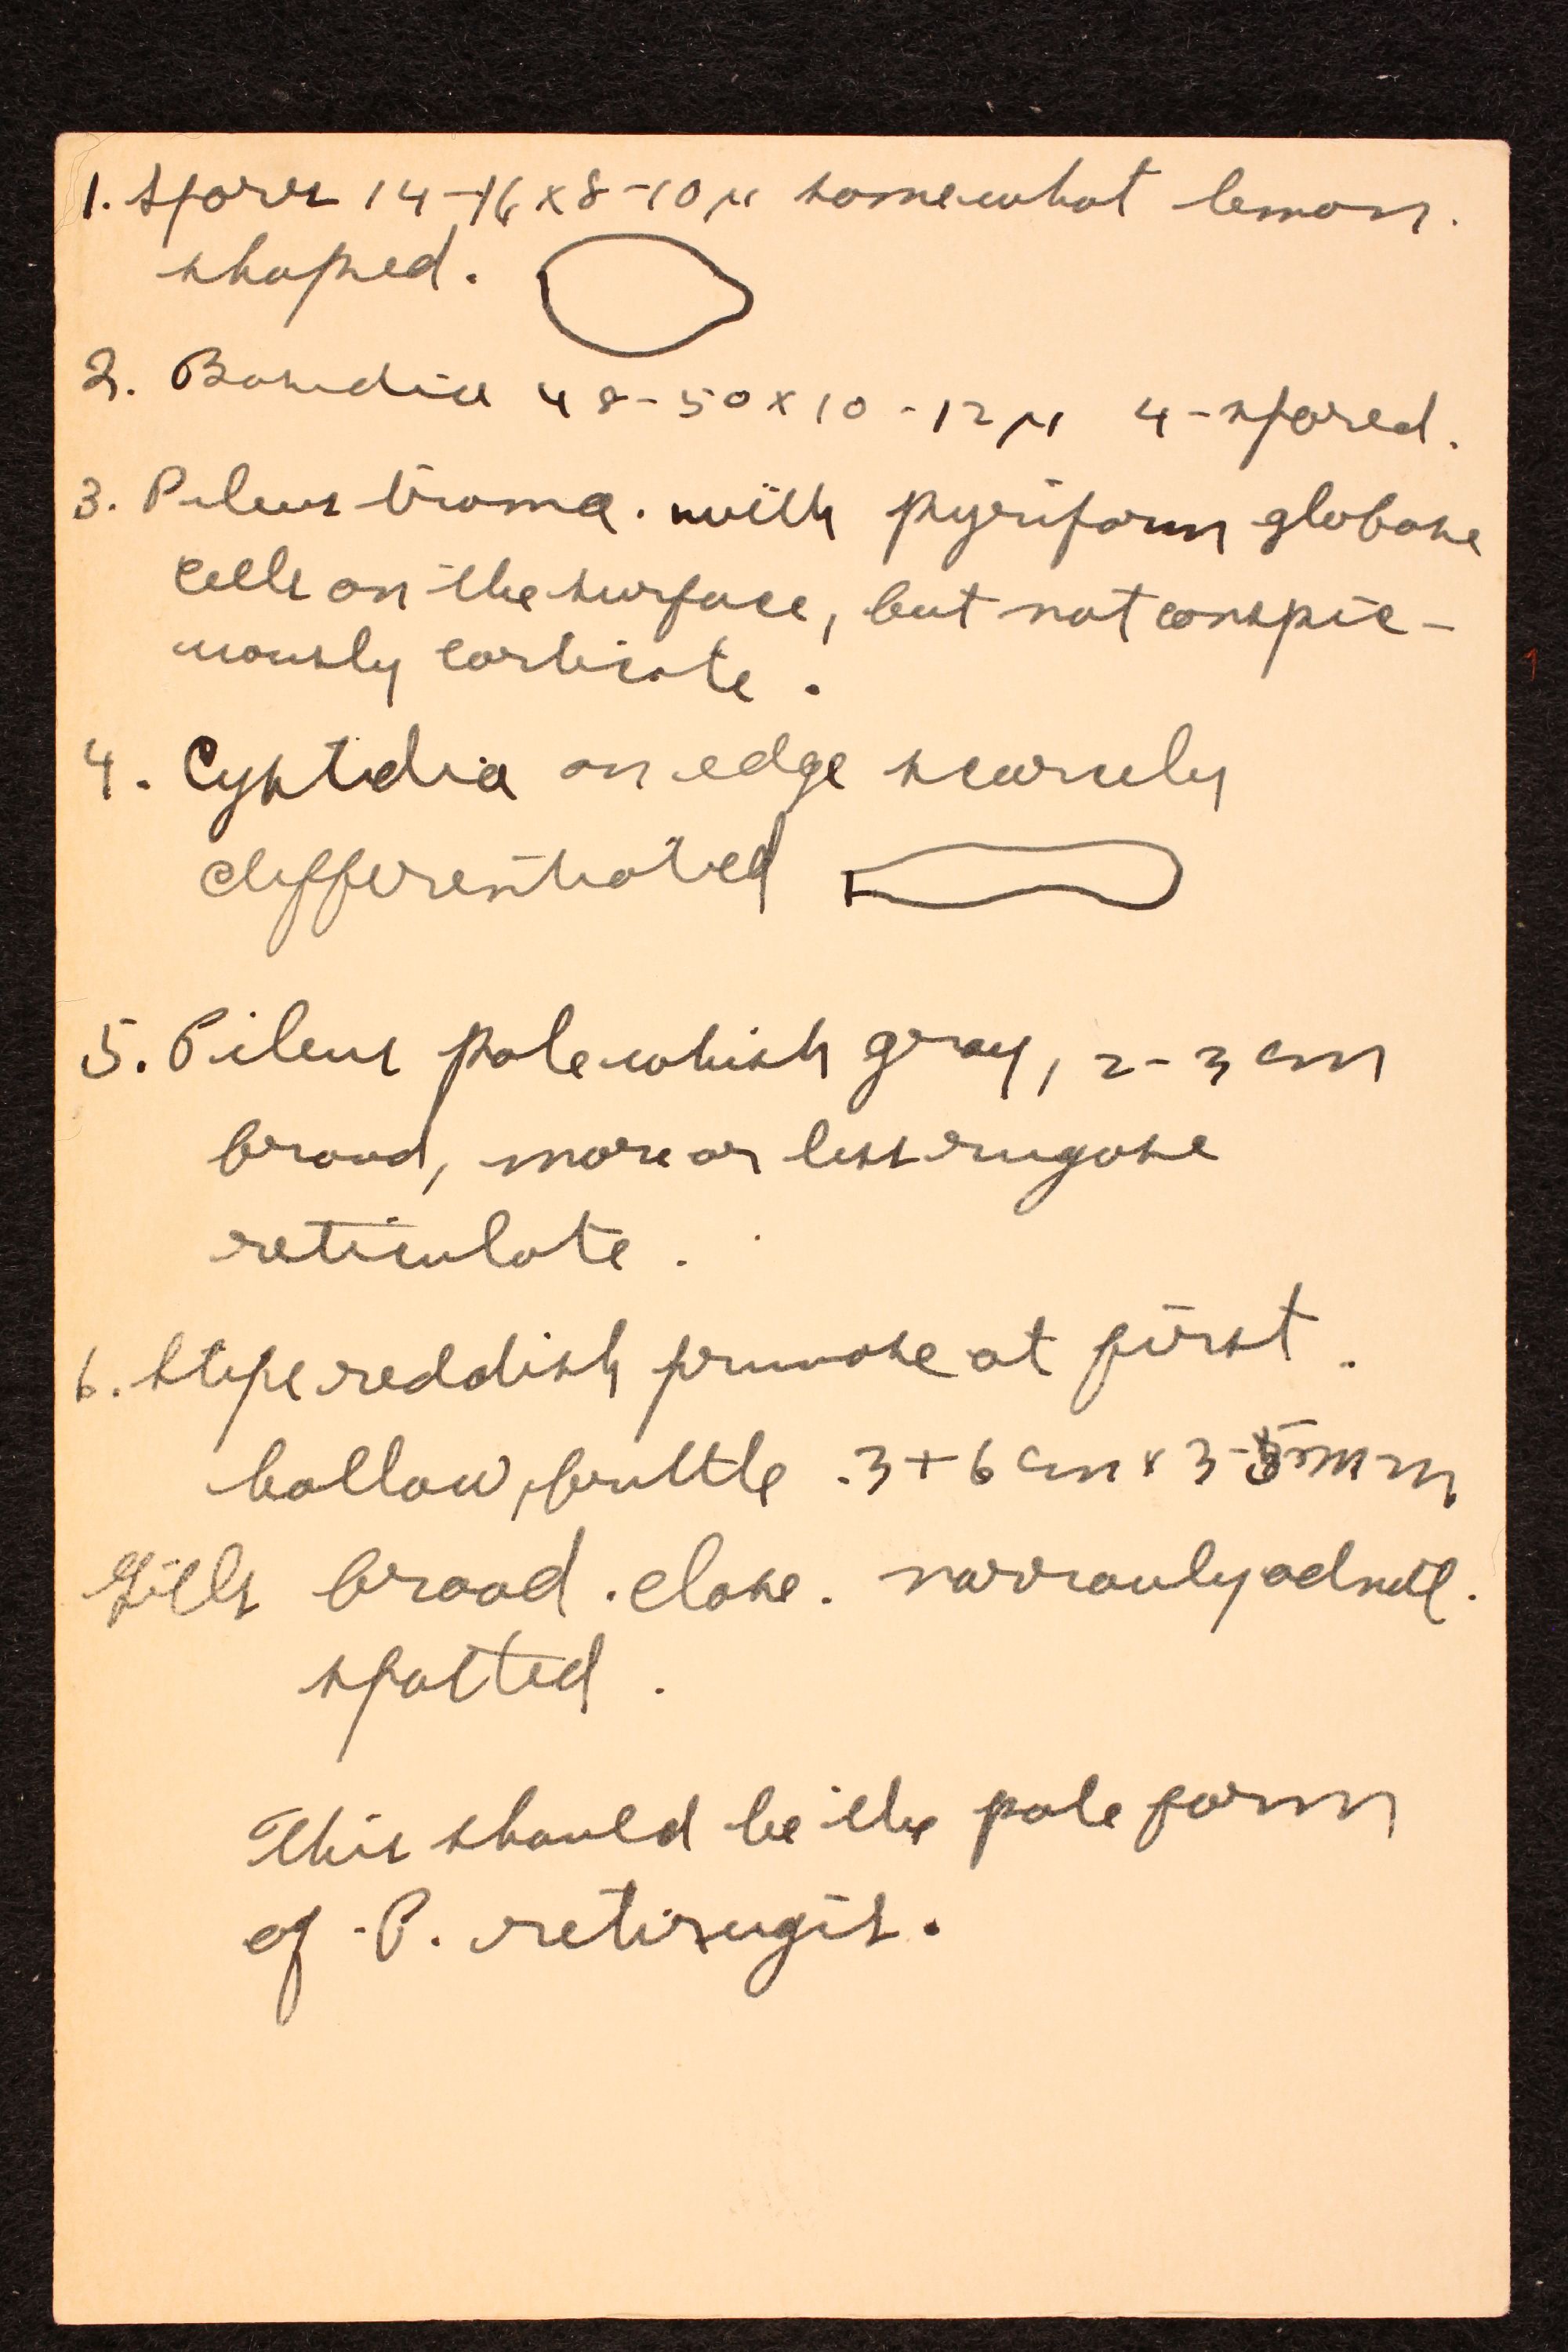 1. Spores 14-16 x 8-10 µ somewhat lemon.
shaped.
2. Basidia 48-50 x 10-12 µ 4-spored.
3. Pileus trama. with pyriform globose
cells on the surface, but not conspic-
uously corticate.
4. Cystidia on edge scarcely
differentiated
5. Pileus pale whish gray, 2-3 cm
broad, more or less rugose
reticulate.
6. Stipe reddish pruinose at first.
hollow, brittle. 3+6 cm x 3-5 mm
Gills broad. close. narrowly adnate.
spotted.
This should be the pale form
of P. retirugis.